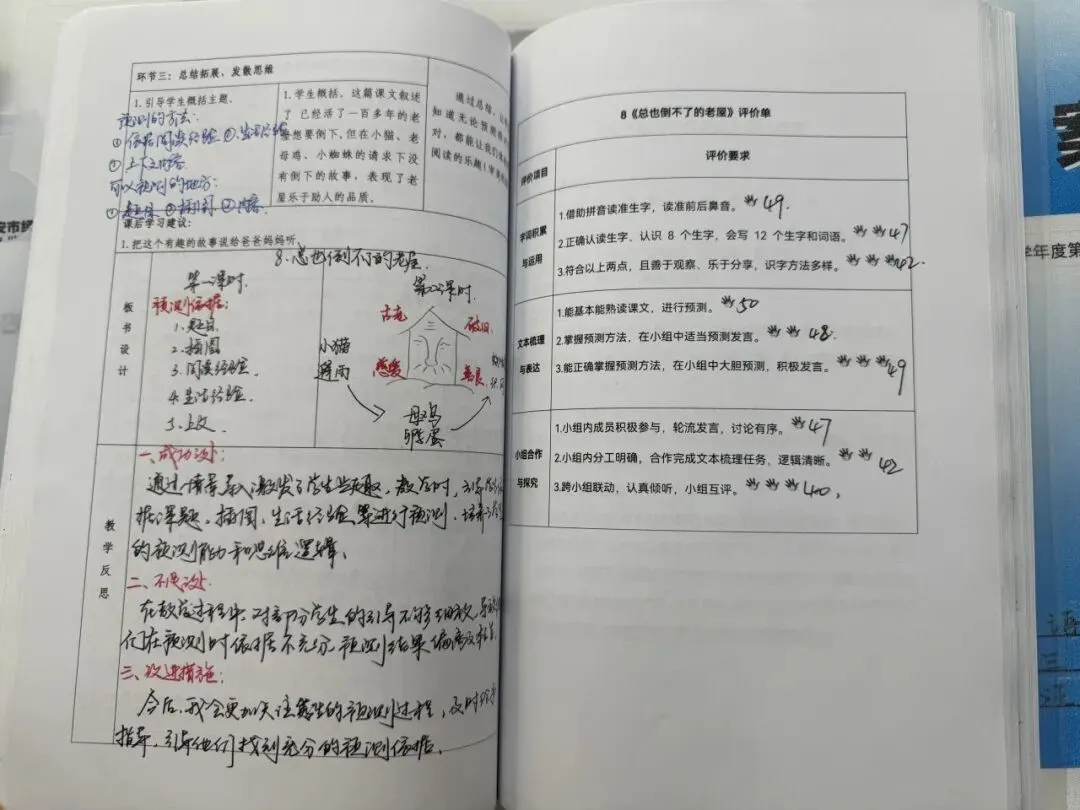 环节三：总结拓展，发散思维
1. 引导学生概括主题。
预测的方法：
①依据阅读经验 ②生活经验
③上下文内容
可以预测的地方：
①题目 ②插图 ③内容
1. 学生概括。这篇课文叙述
了 已经活了一百多年的老
屋想要倒下，但在小猫、老
母鸡、小蜘蛛的请求下没
有倒下的故事，表现了老
屋乐于助人的品质。
通过总结，
知道无论预测
对，都能让我们
阅读的乐趣！
课后学习建议：
1. 把这个有趣的故事说给爸爸妈妈听。
板书设计
8.总也倒不了的老屋
第一课时
预测依据：
1.题目
2.插图
3.阅读经验
4.生活经验
5.上文
第二课时
古老
破旧
慈爱
善良
小猫
避雨
母鸡
孵蛋
教学反思
一、成功之处：
通过情景导入激发了学生兴趣，教学时，引导学生
据课题、插图、生活经验等进行预测，培养了学生
的预测能力和思维逻辑。
二、不足之处
在教学过程中，对部分学生的引导不够细致，导致
们在预测时依据不充分，预测结果偏离
三、改进措施：
今后，我会更加关注学生的预测过程，及时给予
指导，引导他们找到充分的预测依据。
8《总也倒不了的老屋》评价单
评价项目
评价要求
字词积累
与运用
1.借助拼音读准生字，读准前后鼻音。 49.
2.正确认读生字、认识 8 个生字，会写 12 个生字和词语。 47
3.符合以上两点，且善于观察、乐于分享，识字方法多样。 42.
文本梳理
与表达
1.能基本能熟读课文，进行预测。 50
2.掌握预测方法，在小组中适当预测发言。 48.
3.能正确掌握预测方法，在小组中大胆预测，积极发言。 49
小组合作
与探究
1.小组内成员积极参与，轮流发言，讨论有序。 47
2.小组内分工明确，合作完成文本梳理任务，逻辑清晰。 42
3.跨小组联动，认真倾听，小组互评。 40.
学年度第
语
三